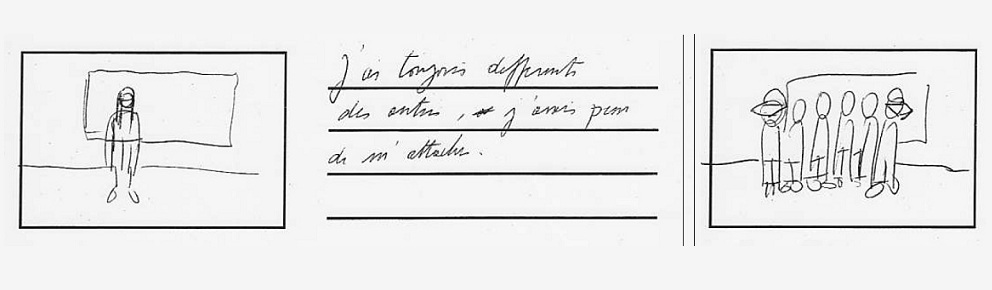 J'ai toujours differents
des autres, j'avais peur
de m'attacher.